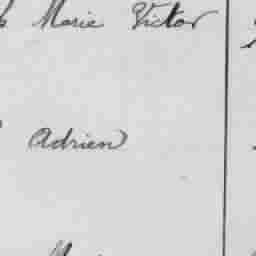 Marie Victor
Adrien